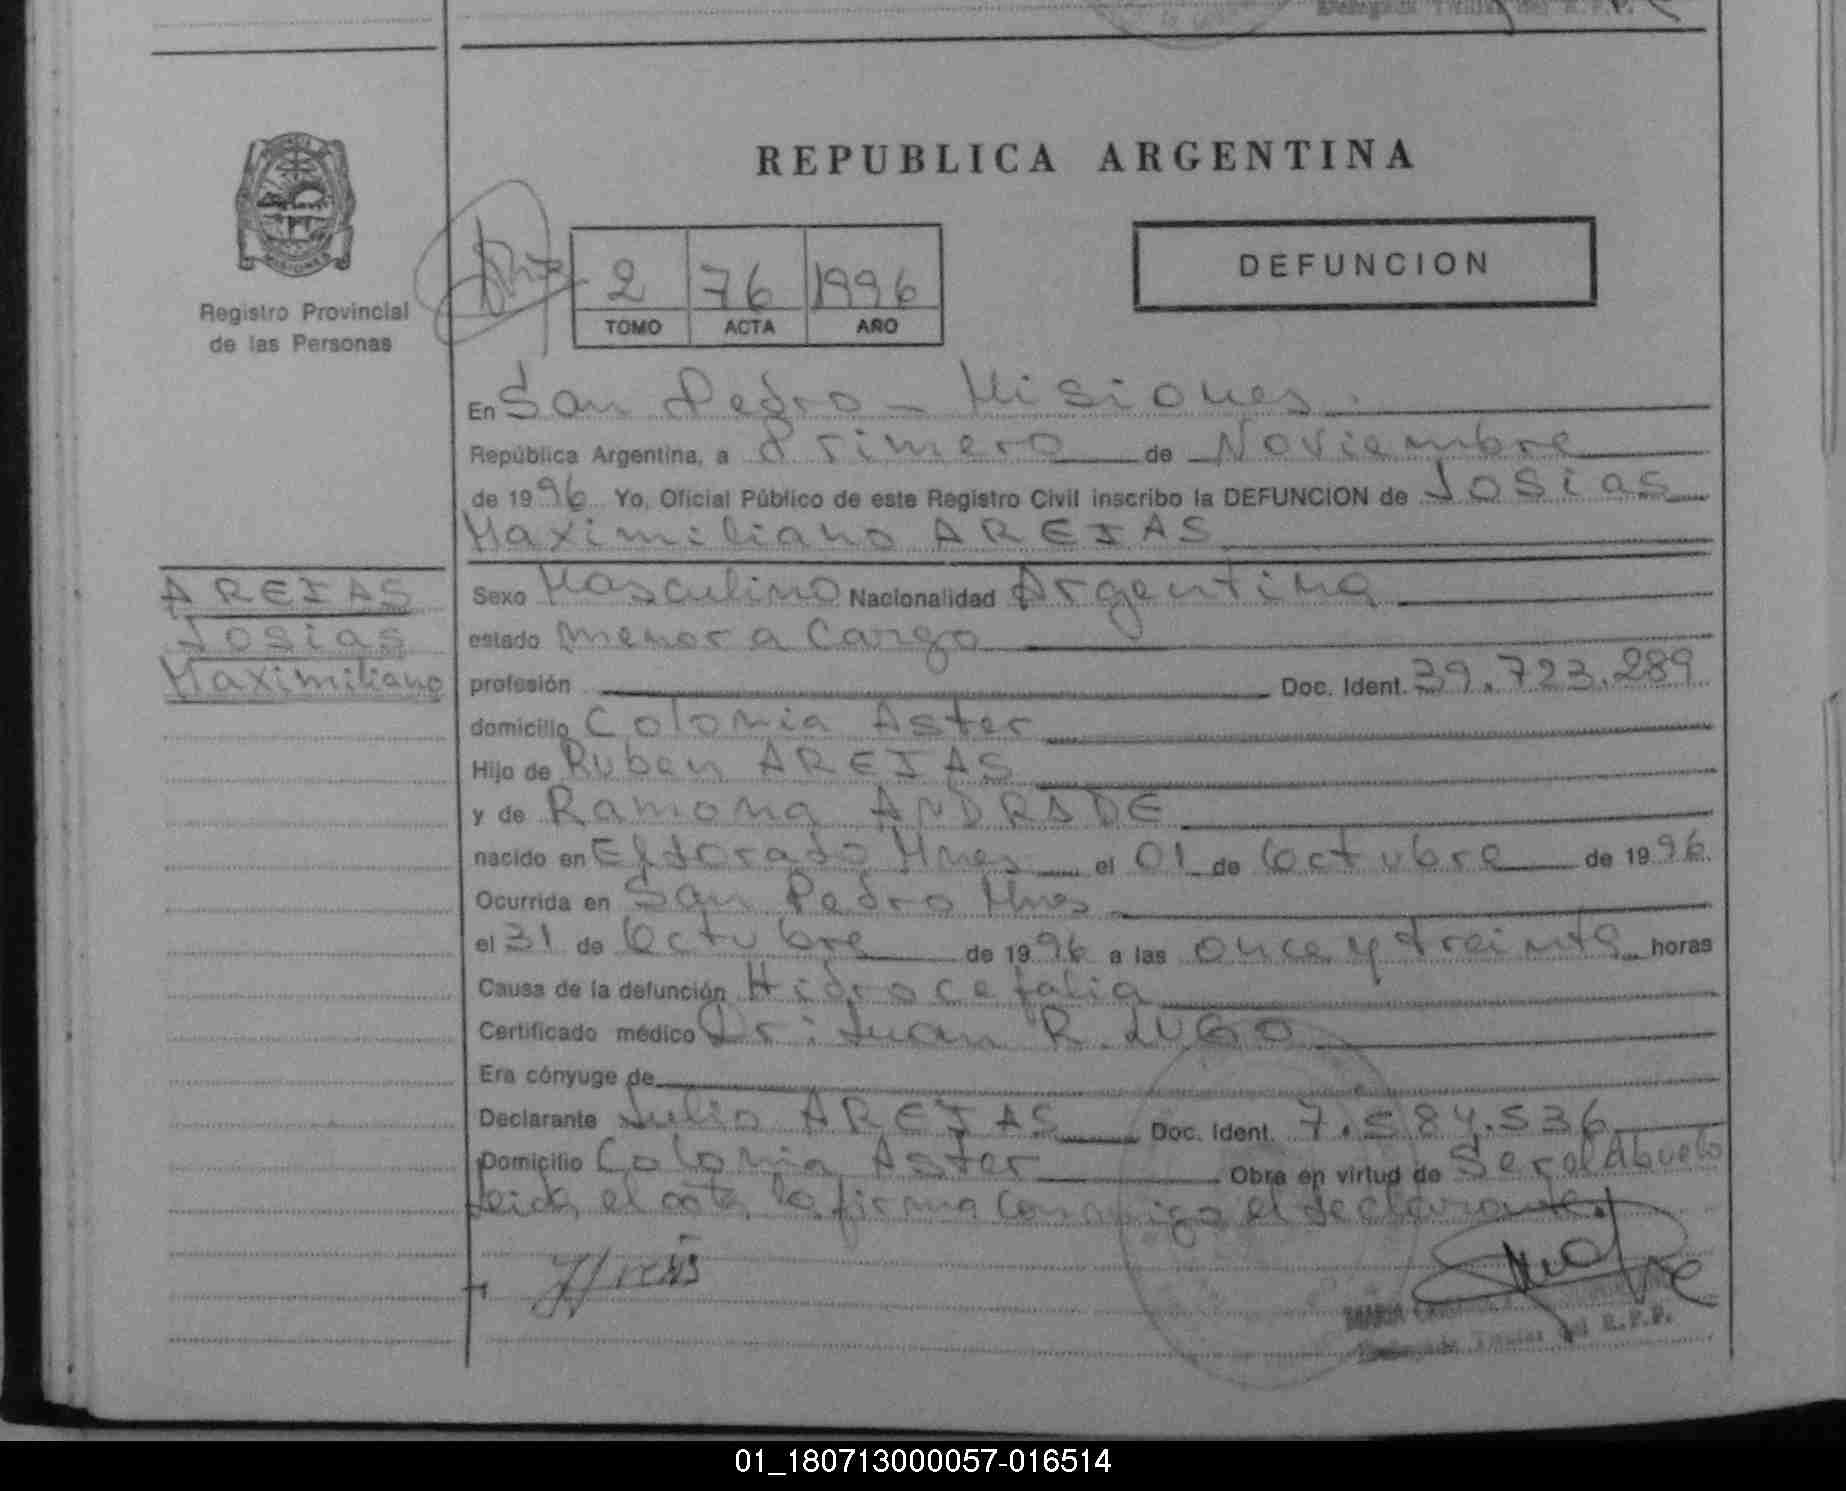 REPUBLICA ARGENTINA
DEFUNCION
Registro Provincial
de las Personas
2 76 1996
TOMO ACTA AÑO
En San Pedro - Misiones.
República Argentina, a Primero de Noviembre
de 1996 Yo, Oficial Público de este Registro Civil inscribo la DEFUNCION de Josias
Maximiliano AREJAS
AREJAS
Josias
Maximiliano
Sexo Masculino Nacionalidad Argentina
estado menor a cargo
profesión Doc. Ident. 39.723.289
domicilio Colonia Aster
Hijo de Ruben AREJAS
y de Ramona ANDRADE
nacido en Eldorado Mnes el 01 de Octubre de 1996.
Ocurrida en San Pedro Mnes
el 31 de Octubre de 1996 a las once y treinta horas
Causa de la defunción Hidrocefalia
Certificado médico Dr: Juan R. LUGO
Era cónyuge de
Declarante Julio AREJAS Doc. Ident. 7.584.536
Domicilio Colonia Aster Obra en virtud de Ser el Abuelo
Leida el acta la firma conmigo el declarante.
MARIA
Delegada Titular del R.P.P.
01_180713000057-016514